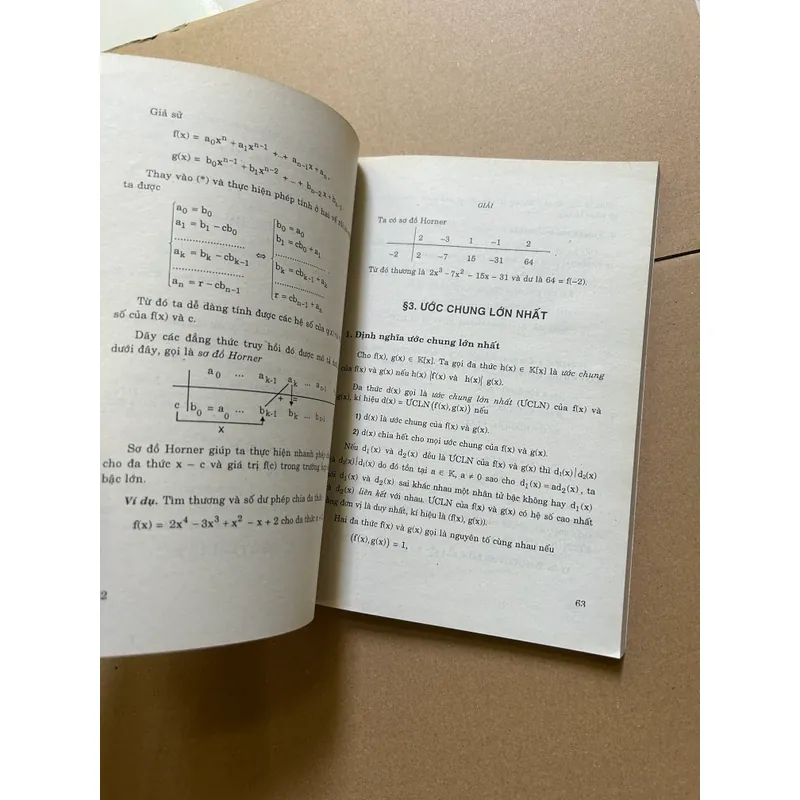 Giả sử
f(x) = a₀xⁿ + a₁xⁿ⁻¹ + ... + aₙ₋₁x + aₙ,
g(x) = b₀xⁿ⁻¹ + b₁xⁿ⁻² + ... + bₙ₋₂x + bₙ₋₁
Thay vào (*) và thực hiện phép tính ở hai vế
ta được
a₀ = b₀
a₁ = b₁ − cb₀
..................
aₖ = bₖ − cbₖ₋₁
..................
aₙ = r − cbₙ₋₁
⇔
b₀ = a₀
b₁ = cb₀ + a₁
..................
bₖ = cbₖ₋₁ + aₖ
..................
r = cbₙ₋₁ + aₙ
Từ đó ta dễ dàng tính được các hệ số của
số của f(x) và c.
Dãy các đẳng thức truy hồi đó được mô tả
dưới đây, gọi là sơ đồ Horner
a₀ ... aₖ₋₁ aₖ ... aₙ₋₁
+ =
c b₀ = a₀ ... bₖ₋₁ bₖ ... bₙ₋₁
x
Sơ đồ Horner giúp ta thực hiện nhanh phép
cho đa thức x − c và giá trị f(c) trong trường
bậc lớn.
Ví dụ. Tìm thương và số dư phép chia đa
f(x) = 2x⁴ − 3x³ + x² − x + 2 cho đa thức
2
GIẢI
Ta có sơ đồ Horner
2 −3 1 −1 2
−2 2 −7 15 −31 64
Từ đó thương là 2x³ − 7x² − 15x − 31 và dư là 64 = f(−2).
§3. ƯỚC CHUNG LỚN NHẤT
1. Định nghĩa ước chung lớn nhất
Cho f(x), g(x) ∈ K[x]. Ta gọi đa thức h(x) ∈ K[x] là ước chung
của f(x) và g(x) nếu h(x) |f(x) và h(x)| g(x).
Đa thức d(x) gọi là ước chung lớn nhất (ƯCLN) của f(x) và
g(x), kí hiệu d(x) = ƯCLN (f(x), g(x)) nếu
1) d(x) là ước chung của f(x) và g(x).
2) d(x) chia hết cho mọi ước chung của f(x) và g(x).
Nếu d₁(x) và d₂(x) đều là ƯCLN của f(x) và g(x) thì d₁(x)|d₂(x)
và d₂(x)|d₁(x) do đó tồn tại a ∈ K, a ≠ 0 sao cho d₁(x) = ad₂(x), ta
d₁(x) và d₂(x) sai khác nhau một nhân tử bậc không hay d₁(x)
và d₂(x) liên kết với nhau. ƯCLN của f(x) và g(x) có hệ số cao nhất
bằng đơn vị là duy nhất, kí hiệu là (f(x), g(x)).
Hai đa thức f(x) và g(x) gọi là nguyên tố cùng nhau nếu
(f(x), g(x)) = 1,
63